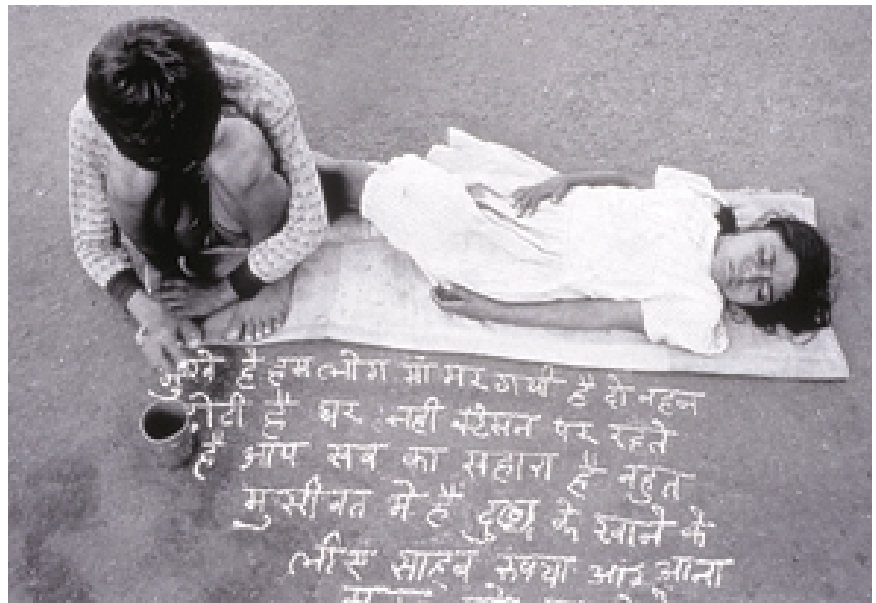 भुखे है हम लोग मां मर गयी है दो बहन
छोटी है घर नही स्टेसन पर रहते
है आप सब का सहारा है बहुत
मुसीबत में है कुछ के खाने के
लीए साहब रुपया आठ आना